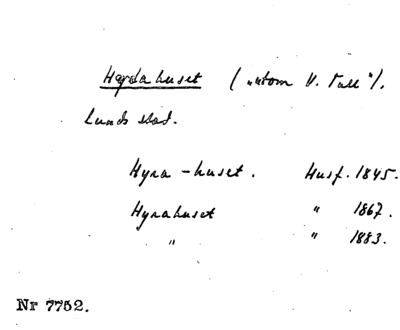 Hyrdahuset ("utom V. Tull").
Lunds stad.
Hyra-huset. Husf. 1845.
Hyrahuset " 1867.
" " 1883.
Nr 7752.